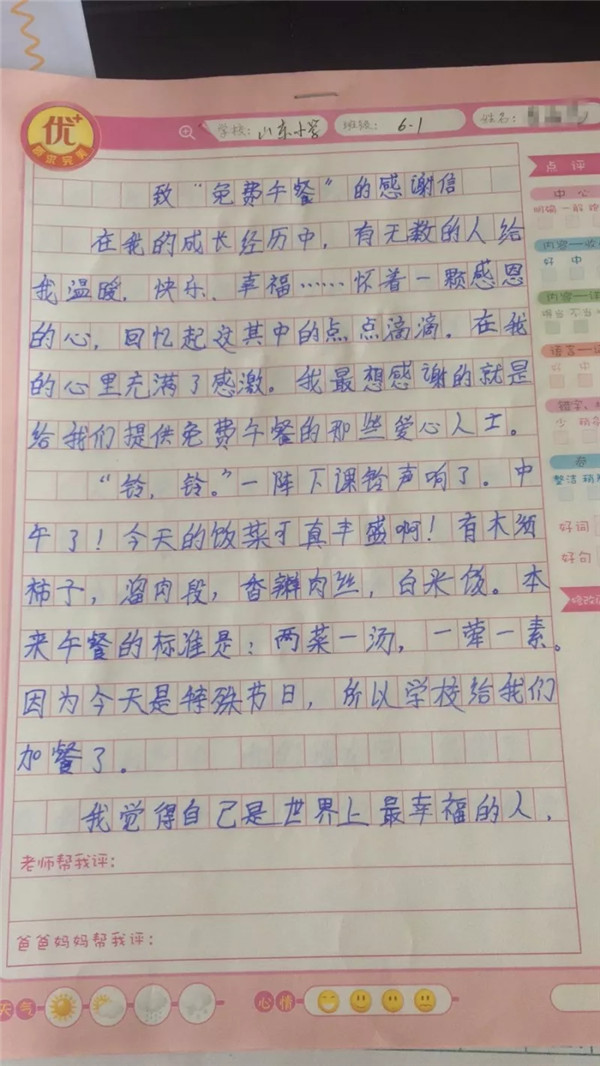 优+
学校：山东小学 班级：6-1 姓名：
点评
致“免费午餐”的感谢信
在我的成长经历中，有无数的人给
我温暖、快乐、幸福……怀着一颗感恩
的心，回忆起这其中的点点滴滴。在我
的心里充满了感激。我最想感谢的就是
给我们提供免费午餐的那些爱心人士。
“铃，铃。”一阵下课铃声响了。中
午了！今天的饭菜可真丰盛啊！有木须
柿子，溜肉段，香辣肉丝，白米饭。本
来午餐的标准是：两菜一汤，一荤一素。
因为今天是特殊节日，所以学校给我们
加餐了。
我觉得自己是世界上最幸福的人，
中心
内容
好 中
内容
语言
好 中
错字
少
卷
整洁
好词
好句
老师帮我评：
爸爸妈妈帮我评：
天气
心情